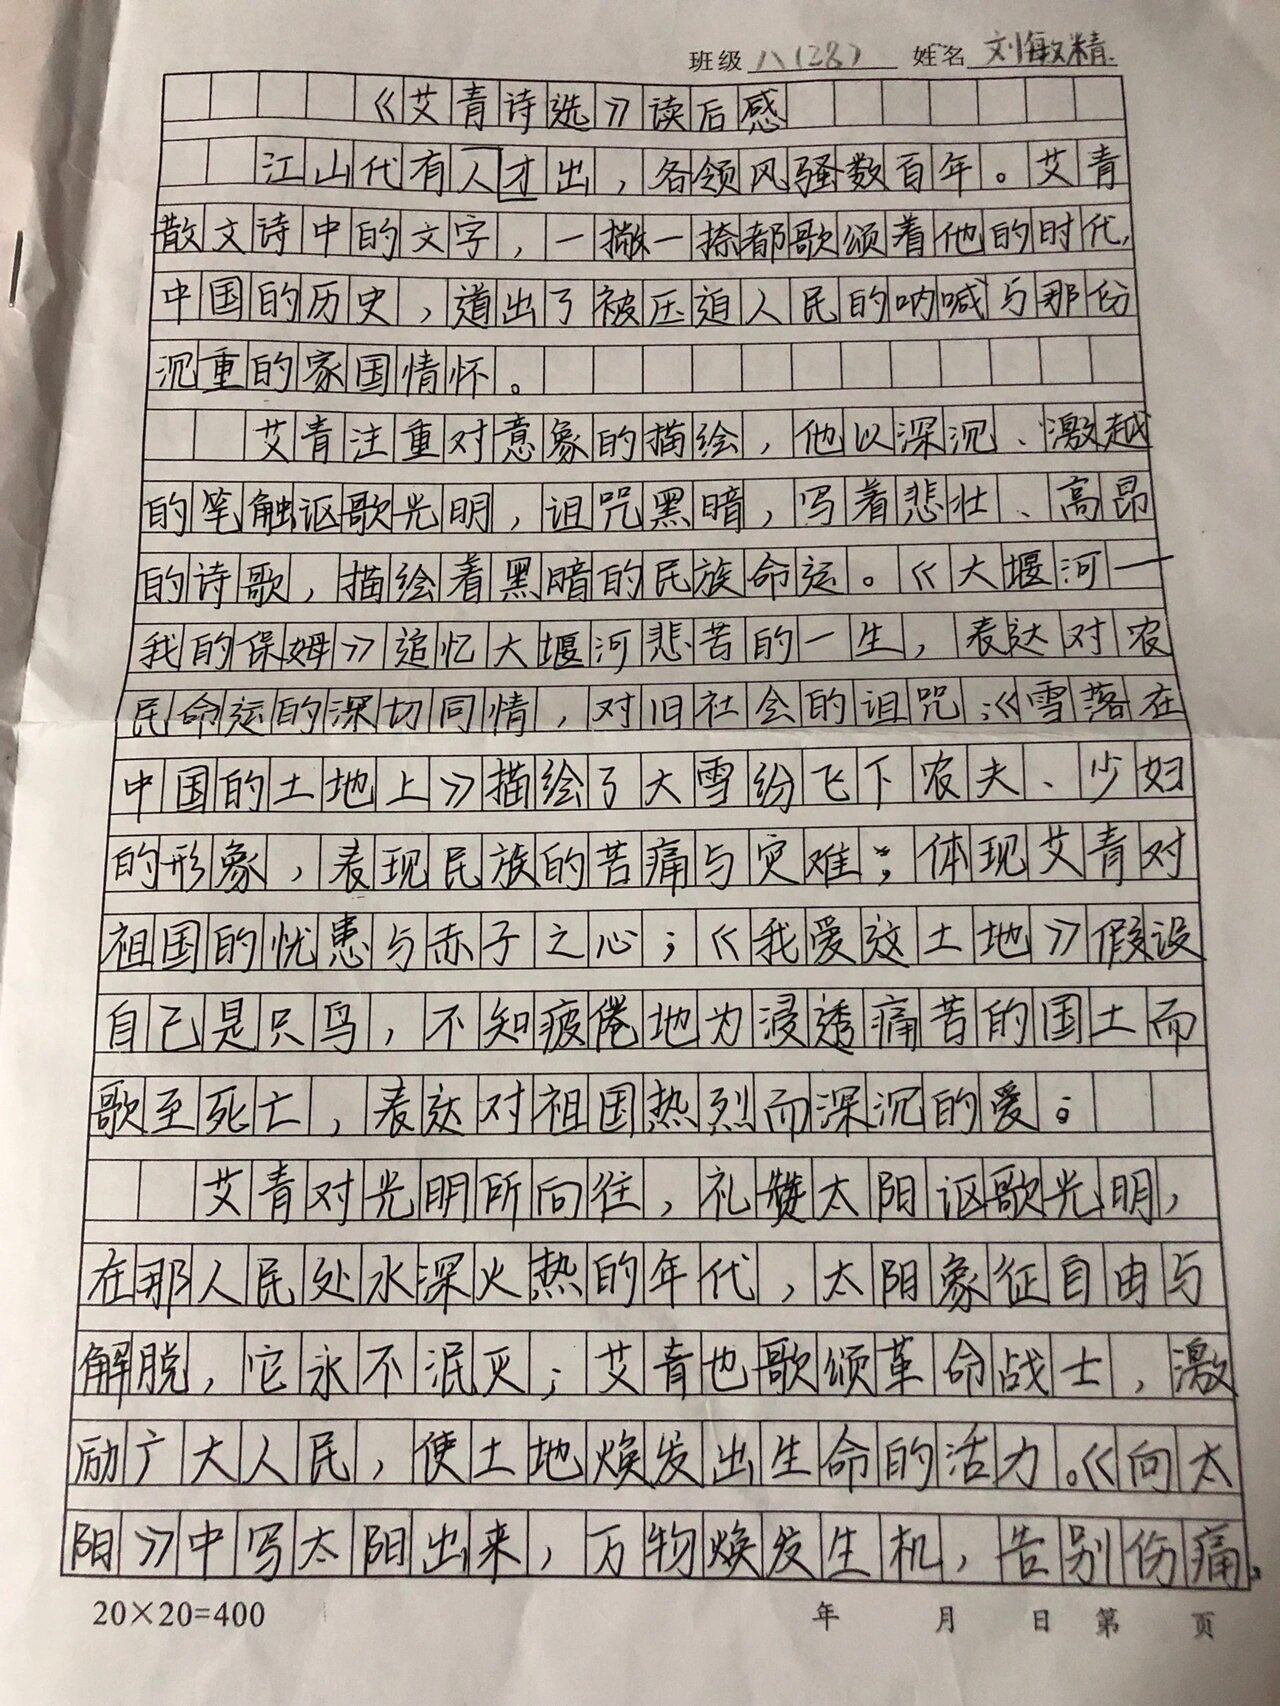 班级 八(28) 姓名 刘敏精
《艾青诗选》读后感
江山代有人才出，各领风骚数百年。艾青
散文诗中的文字，一撇一捺都歌颂着他的时代，
中国的历史，道出了被压迫人民的呐喊与那份
沉重的家国情怀。
艾青注重对意象的描绘，他以深沉、激越
的笔触讴歌光明，诅咒黑暗，写着悲壮、高昂
的诗歌，描绘着黑暗的民族命运。《大堰河—
我的保姆》追忆大堰河悲苦的一生，表达对农
民命运的深切同情，对旧社会的诅咒；《雪落在
中国的土地上》描绘了大雪纷飞下农夫、少妇
的形象，表现民族的苦痛与灾难；体现艾青对
祖国的忧患与赤子之心；《我爱这土地》假设
自己是只鸟，不知疲倦地为浸透痛苦的国土而
歌至死亡，表达对祖国热烈而深沉的爱。
艾青对光明所向往，礼赞太阳讴歌光明，
在那人民处水深火热的年代，太阳象征自由与
解脱，它永不泯灭；艾青也歌颂革命战士，激
励广大人民，使土地焕发出生命的活力。《向太
阳》中写太阳出来，万物焕发生机，告别伤痛。
20×20=400 年 月 日 第 页